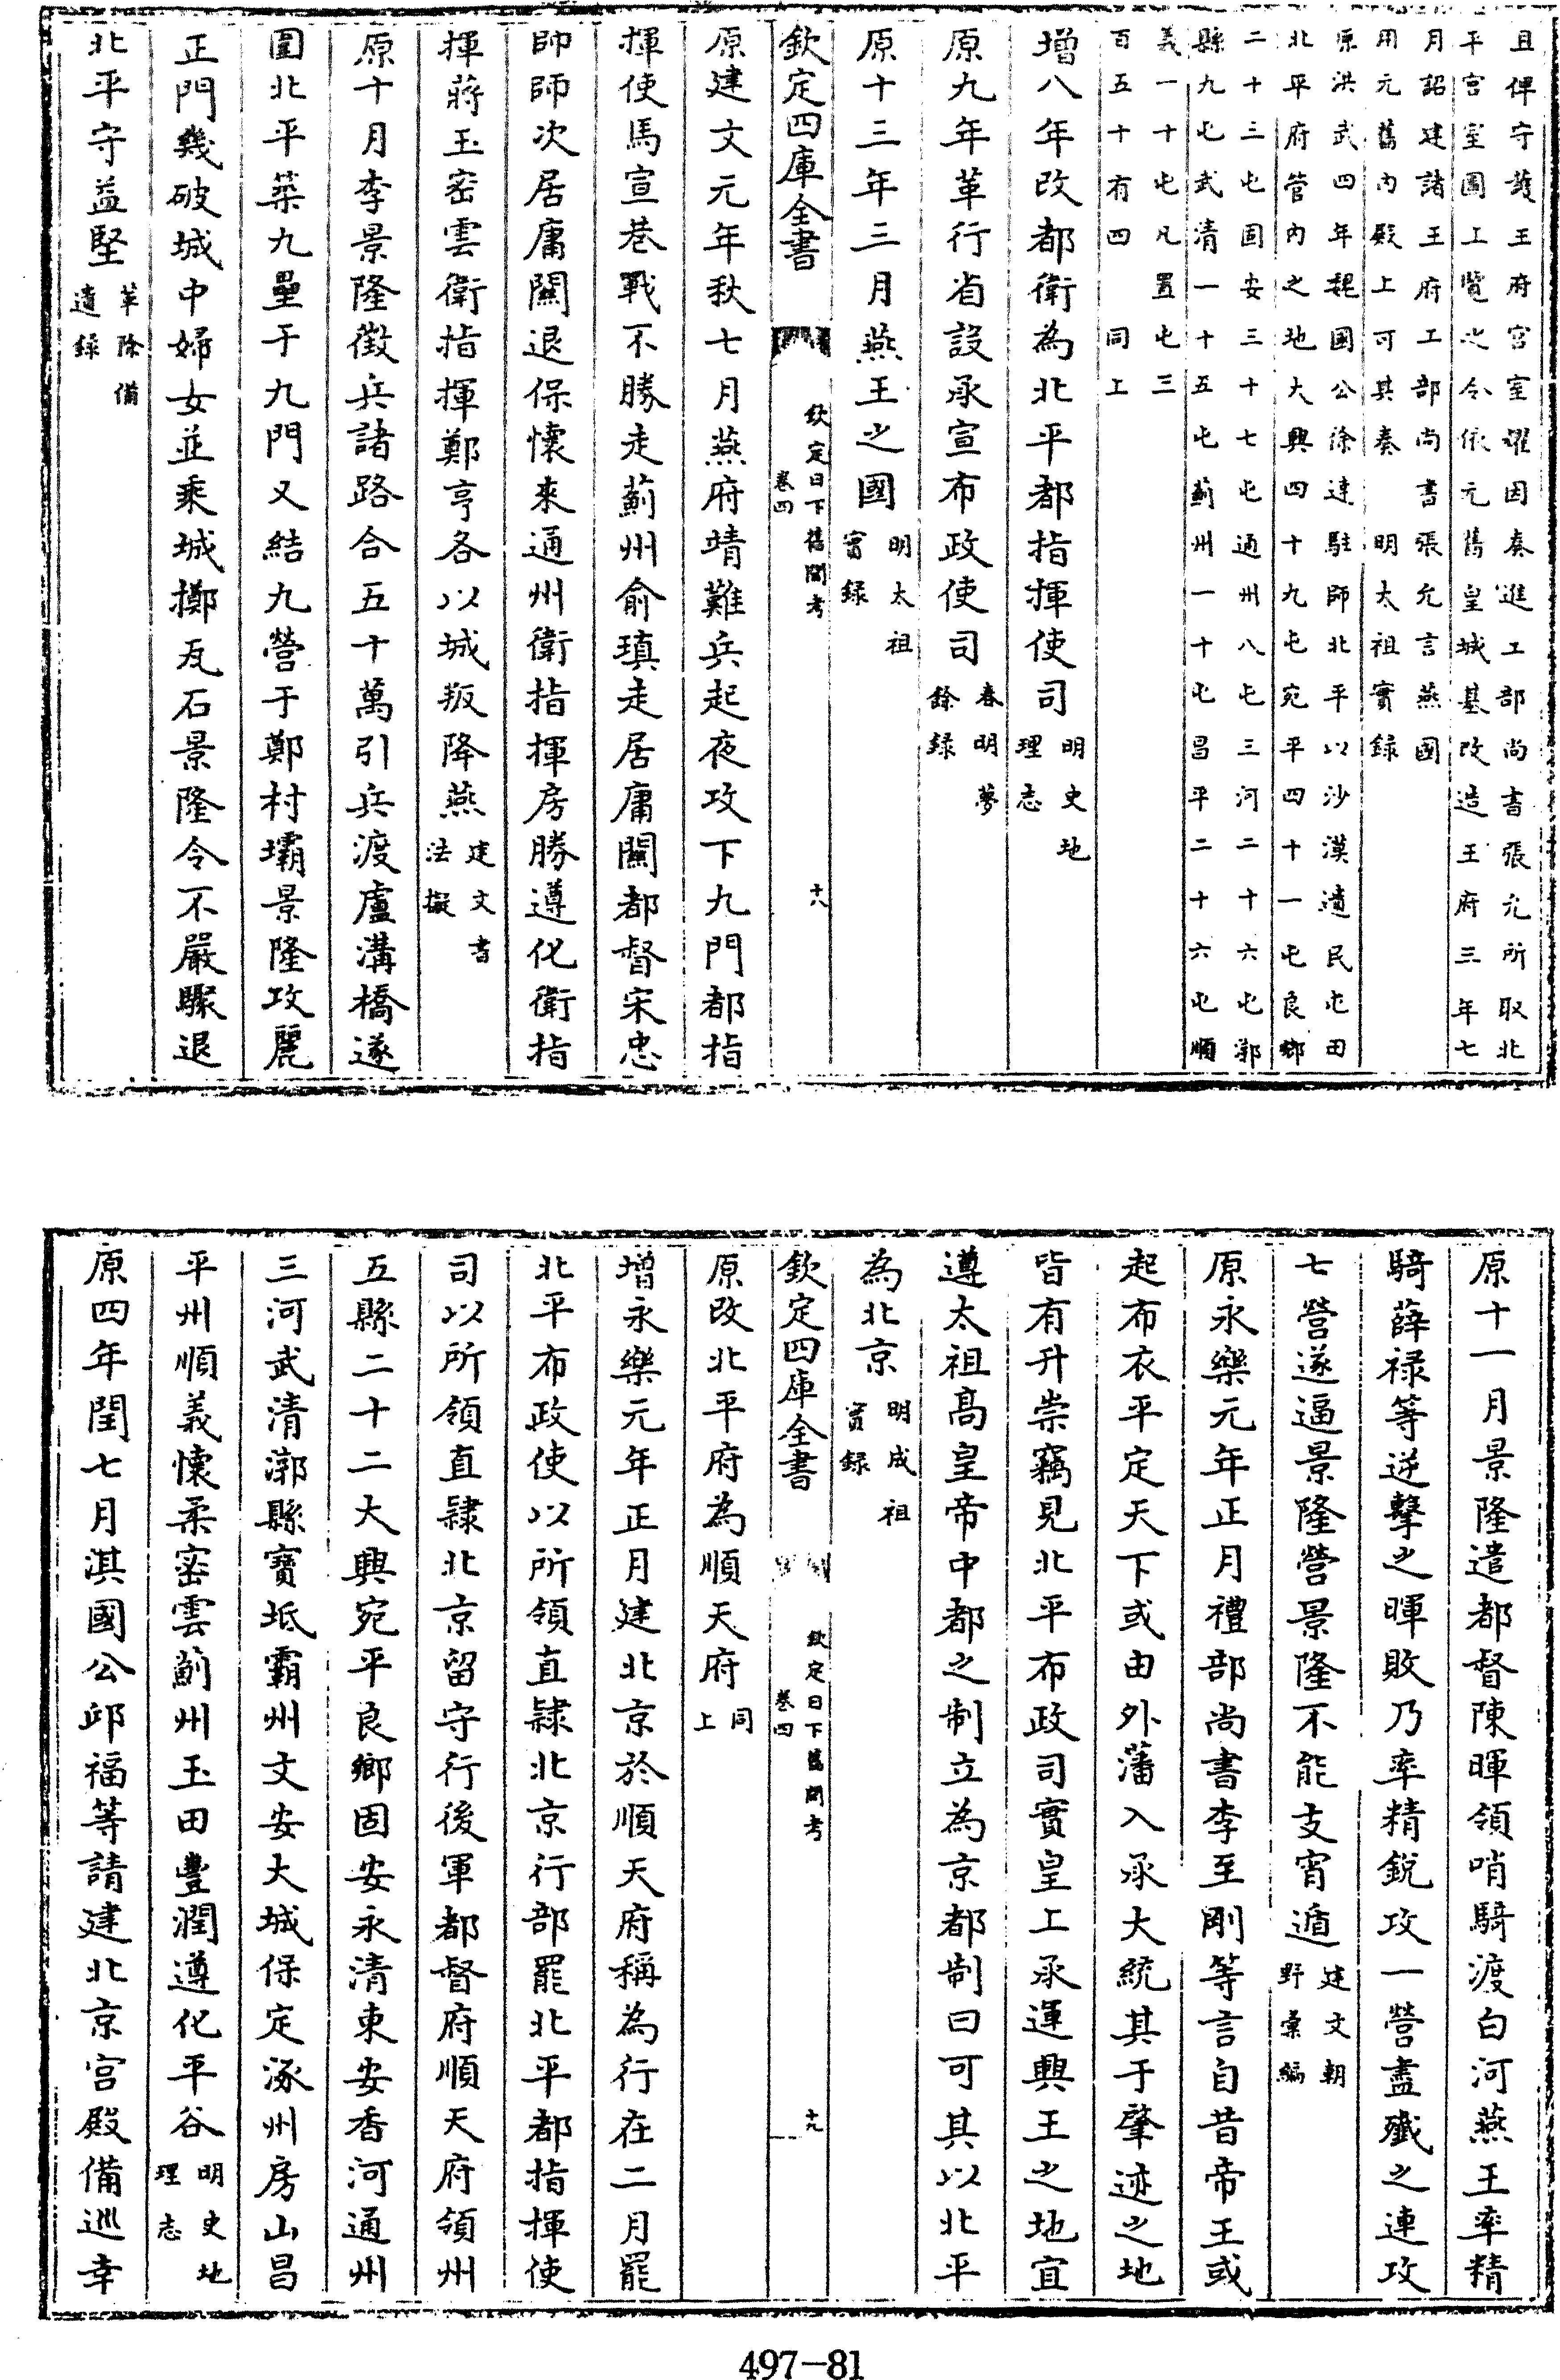 且俾守護王府宮室躍因奏進工部尚書張允所取北
平宮室圖上覽之令依元舊皇城基改造王府三年七
月詔建諸王府工部尚書張允言燕國
用元舊內殿上可其奏 明太祖實録
原洪武四年魏國公徐達駐師北平以沙漠遺民屯田
北平府管內之地大興四十九屯宛平四十一屯良鄉
二十三屯固安三十七屯通州八屯三河二十六屯漷
縣九屯武清一十五屯薊州一十屯昌平二十六屯順
義一十屯凡置屯三
百五十有四 同上
增八年改都衛為北平都指揮使司明史地理志
原九年革行省設承宣布政使司春明夢餘録
原十三年三月燕王之國明太祖實録
欽定四庫全書 欽定日下舊聞考 卷四 十八
原建文元年秋七月燕府靖難兵起夜攻下九門都指
揮使馬宣巷戰不勝走薊州俞瑱走居庸關都督宋忠
帥師次居庸關退保懷來通州衛指揮房勝遵化衛指
揮蔣玉密雲衛指揮鄭亨各以城叛降燕建文書法擬
原十月李景隆徵兵諸路合五十萬引兵渡盧溝橋遂
圍北平築九壘于九門又結九營于鄭村壩景隆攻麗
正門幾破城中婦女並乘城擲瓦石景隆令不嚴驟退
北平守益堅革除備遺録
原十一月景隆遣都督陳暉領哨騎渡白河燕王率精
騎薛禄等逆擊之暉敗乃率精銳攻一營盡殲之連攻
七營遂逼景隆營景隆不能支宵遁建文朝野彙編
原永樂元年正月禮部尚書李至剛等言自昔帝王或
起布衣平定天下或由外藩入承大統其于肇迹之地
皆有升崇竊見北平布政司實皇上承運興王之地宜
遵太祖高皇帝中都之制立為京都制曰可其以北平
為北京明成祖實録
欽定四庫全書 欽定日下舊聞考 卷四 十九
原改北平府為順天府同上
增永樂元年正月建北京於順天府稱為行在二月罷
北平布政使以所領直隸北京行部罷北平都指揮使
司以所領直隸北京留守行後軍都督府順天府領州
五縣二十二大興宛平良鄉固安永清東安香河通州
三河武清漷縣寶坻霸州文安大城保定涿州房山昌
平州順義懷柔密雲薊州玉田豐潤遵化平谷明史地理志
原四年閏七月淇國公邱福等請建北京宮殿備巡幸
497-81